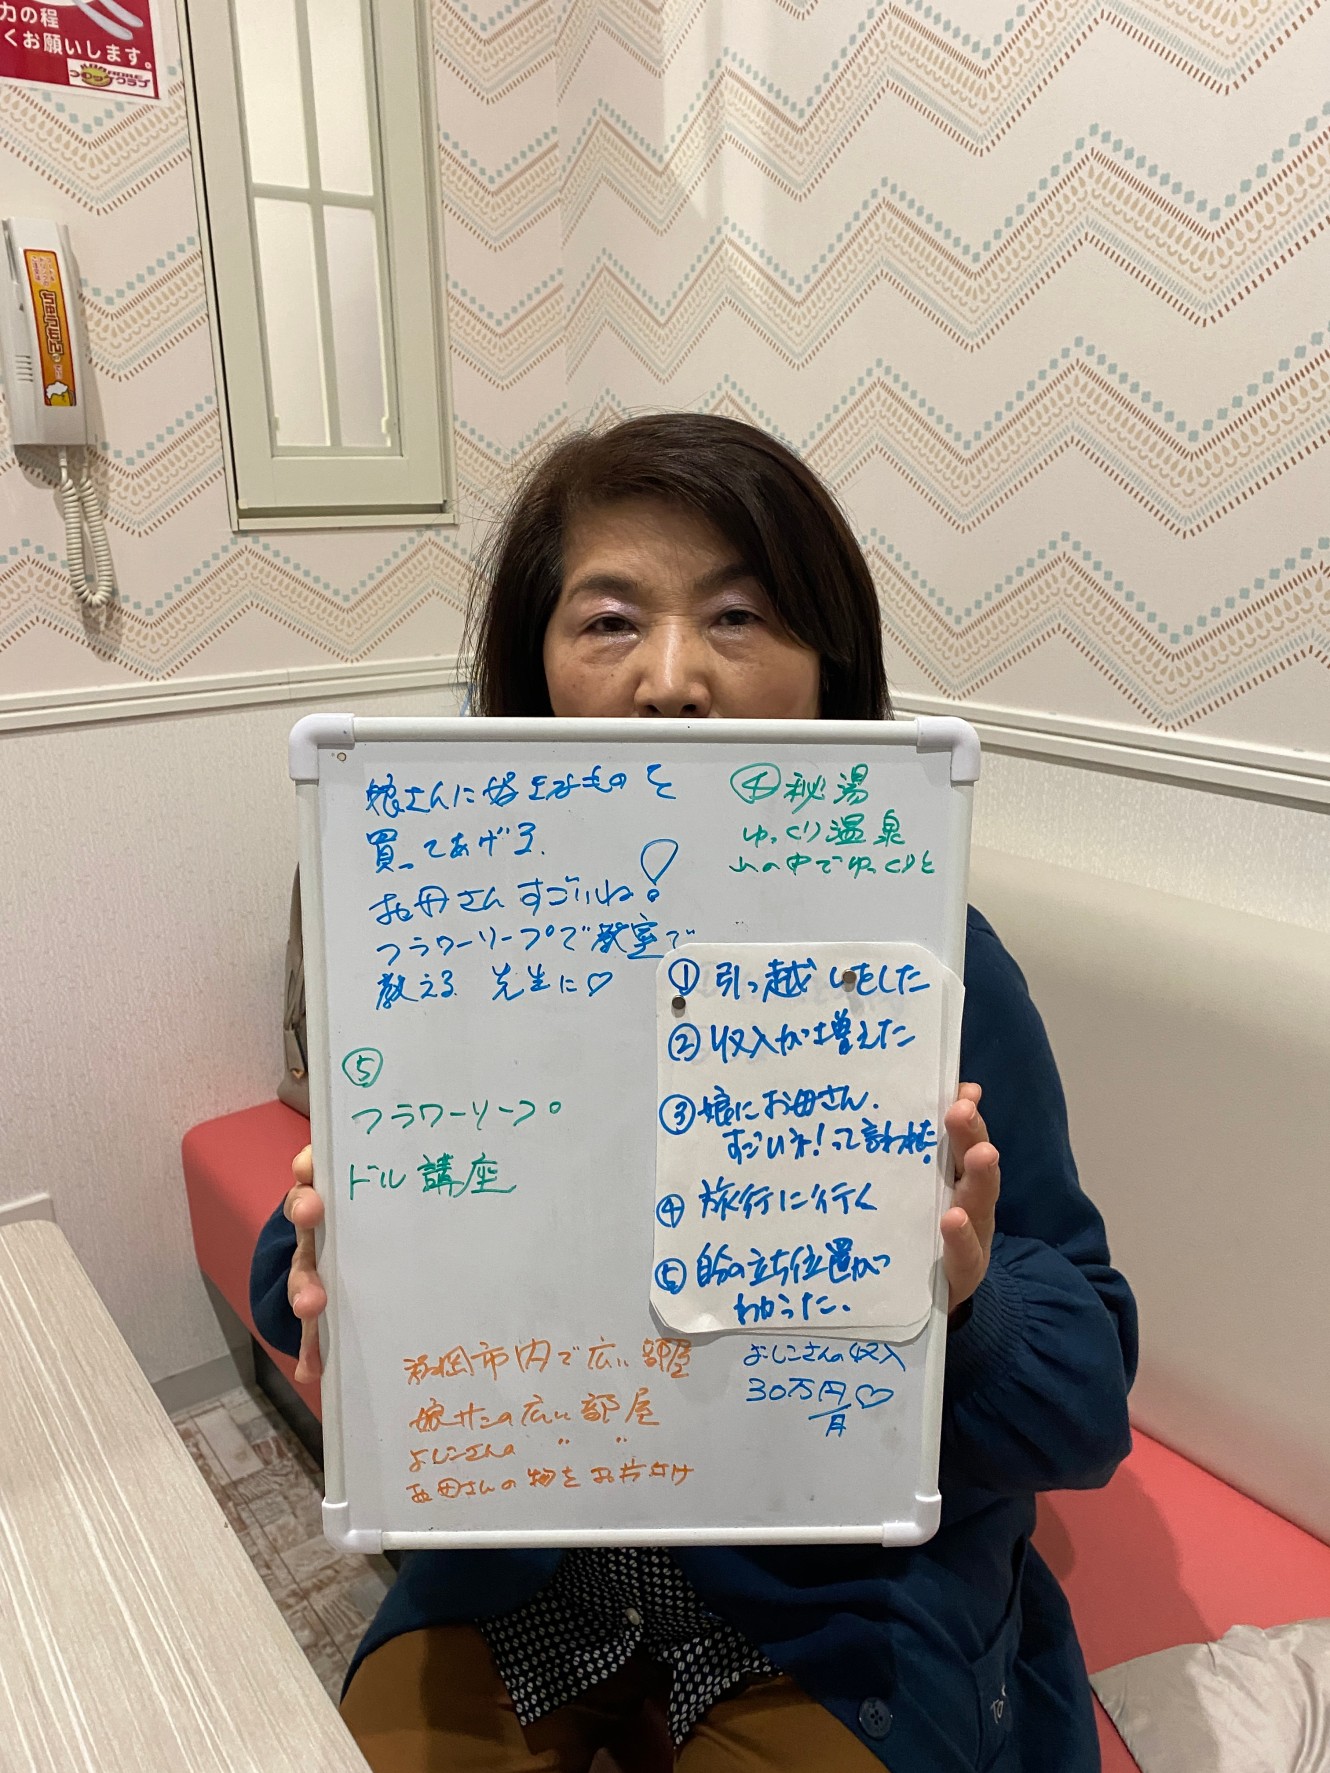 力の程
くお願いします。
クラブ
娘さんに好きなものを
買ってあげる。
お母さんすごいね!
フラワーリープで教室で
教える 先生に♡
④秘湯
ゆっくり温泉
山の中でゆっくりと
①引っ越しをした
②収入が増えた
③娘にお母さん、
すごいネ!って言われた。
④旅行に行く
⑤自分の立ち位置がわ
わかった。
⑤
フラワーリープ。
ドル講座
市内で広い部屋
娘サンの広い部屋
よしこさんの 〃 〃
お母さんの物をお片付け
よしこさんの収入
30万円♡
/月